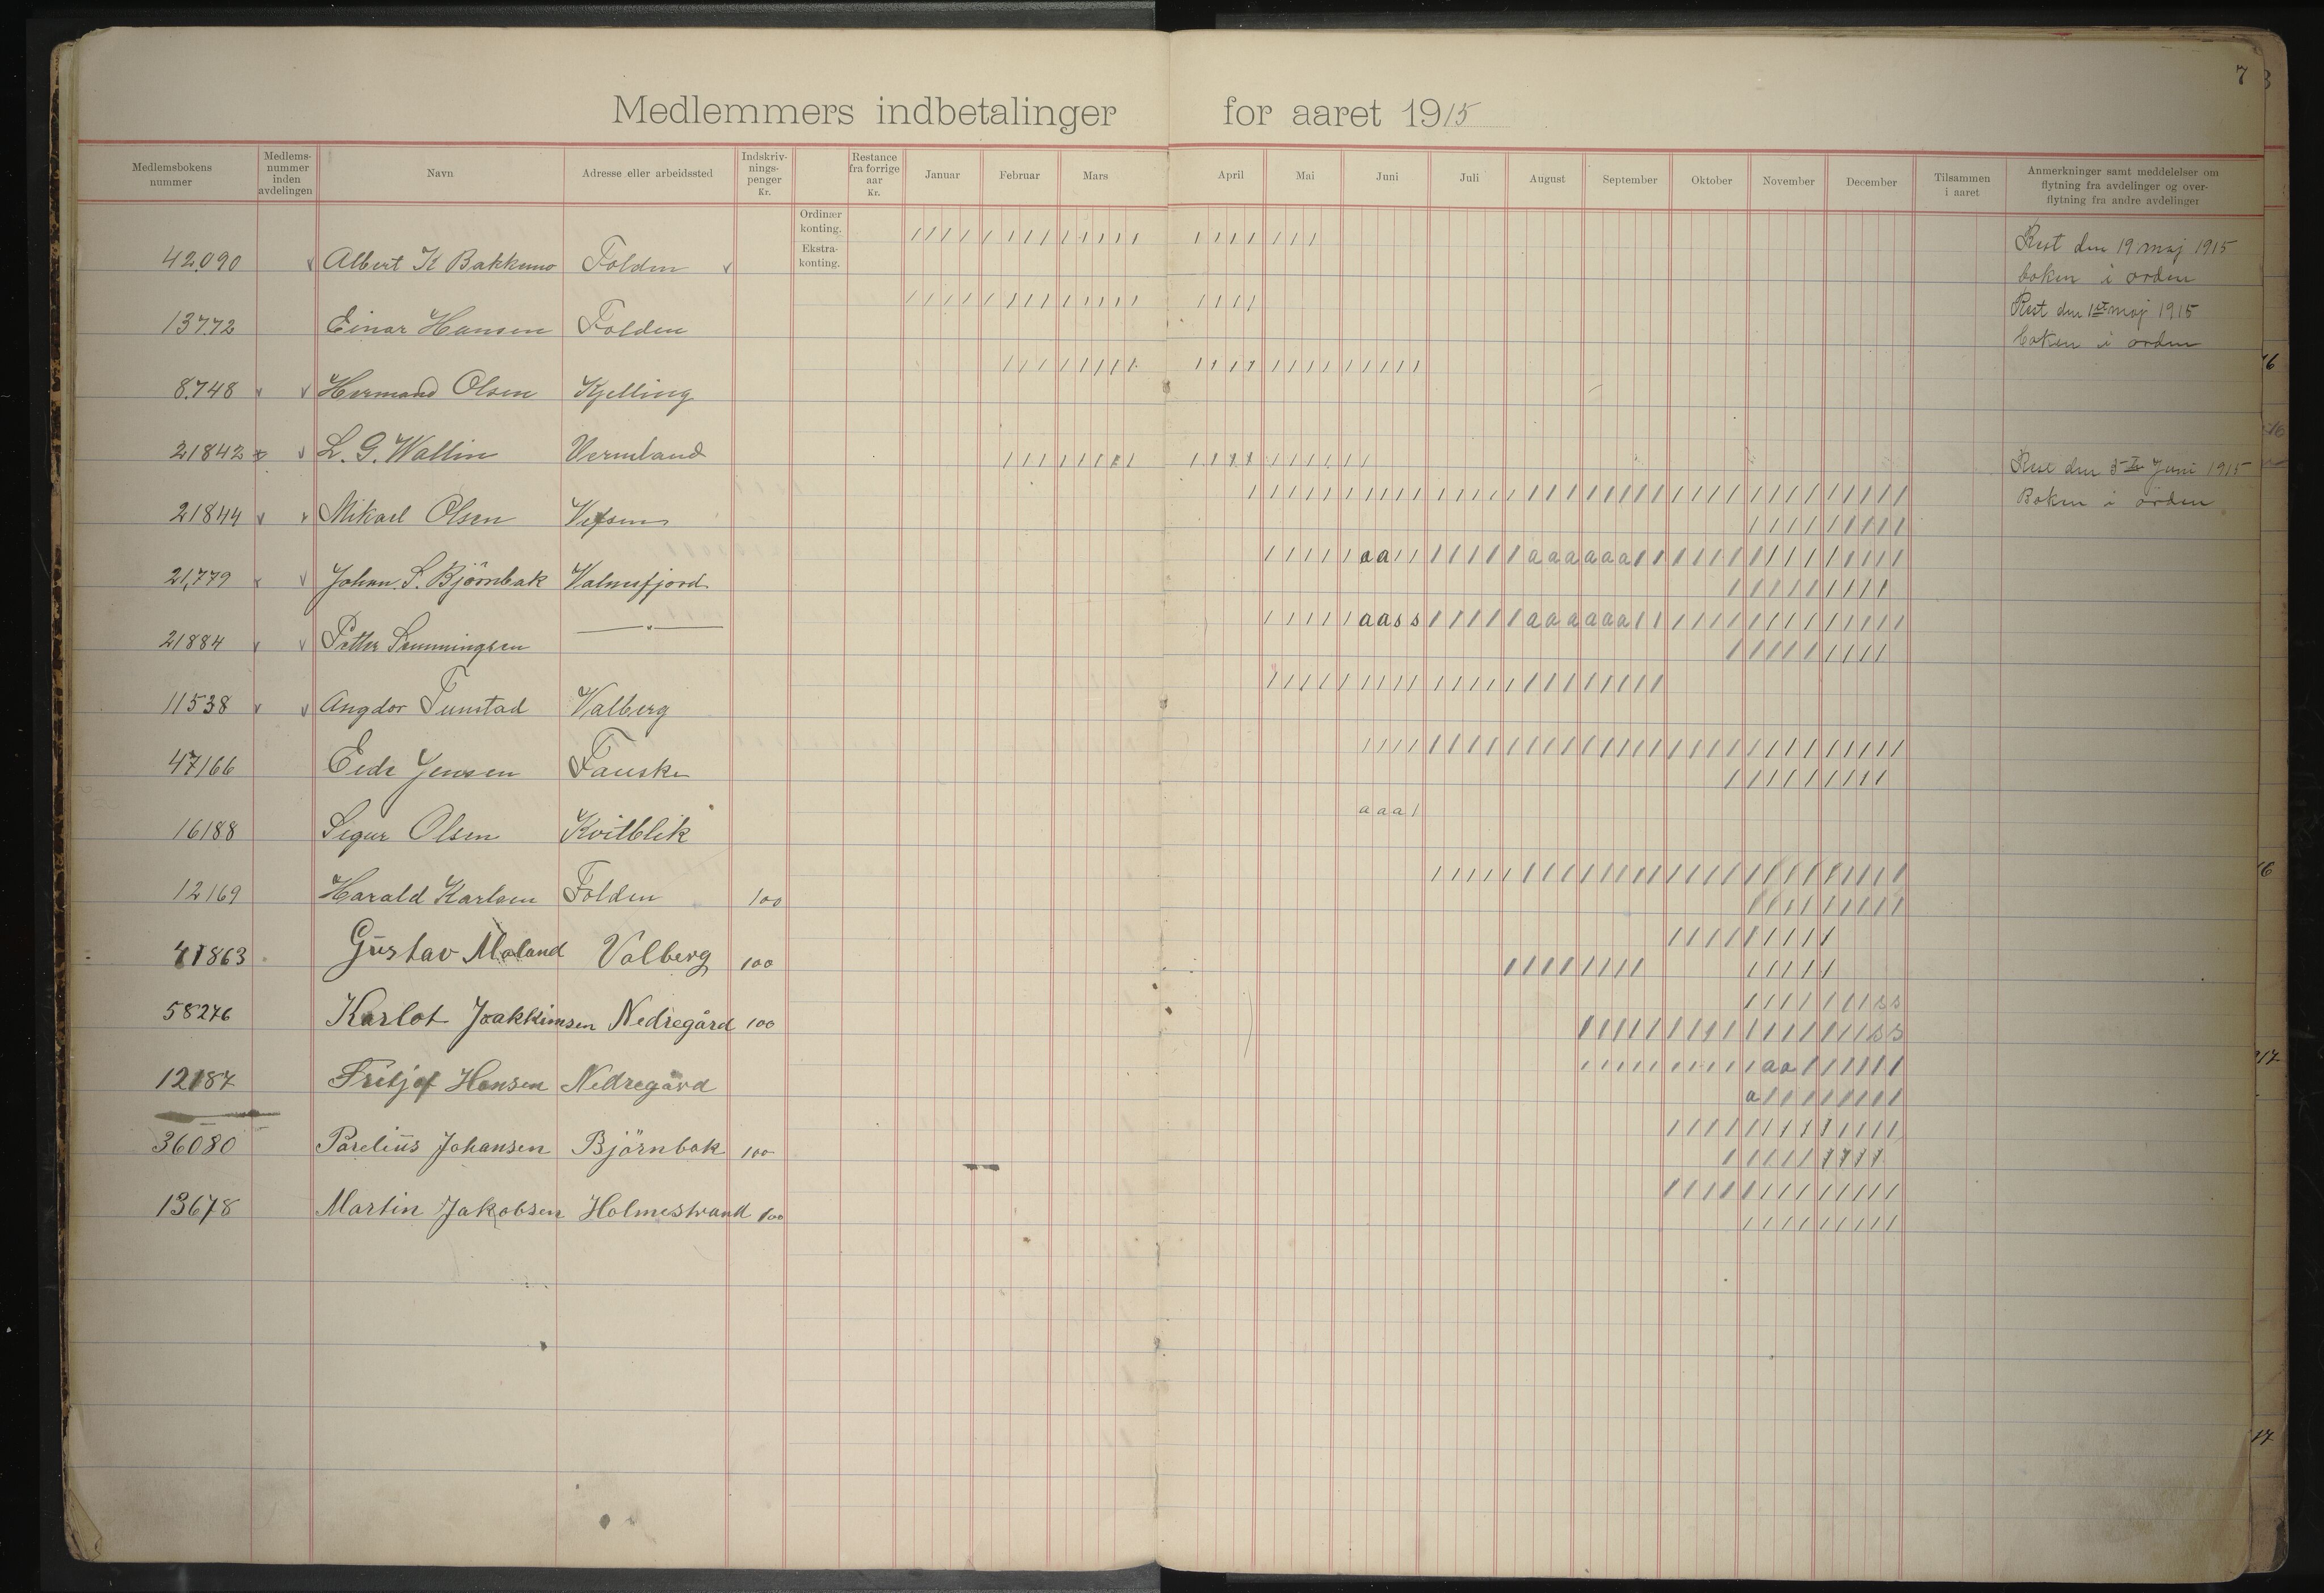 7
Medlemmers indbetalinger for aaret 1915
Medlemsbokens nummer
Medlems-nummer inden avdelingen
Navn
Adresse eller arbeidssted
Indskriv-nings-penger Kr.
Restance fra forrige aar Kr.
Januar Februar Mars April Mai Juni Juli August September Oktober November December
Tilsammen i aaret
Anmerkninger samt meddelelser om flytning fra avdelinger og over-flytning fra andre avdelinger
Ordinær konting.
Ekstra-konting.
42090 Albert K Bakkemo Folden
Reist den 19 maj 1915
boken i orden
13772 Einar Hansen Folden
Reist den 1st maj 1915
boken i orden
8748 Hermand Olsen Kjelling
21842 L. G. Wallin Vermland
Reist den 5te Juni 1915
Boken i orden
21844 Mikael Olsen Vefsen
21,779 Johan S. Björnbak Valnesfjord
aa aaaaaa
21884 Petter
aass aaaaaa
11538 Angdor Tunstad Valberg
47166 Jensen Fauske
16188 Sigur Olsen Kvitblik
aaa
12169 Harald Karlsen Folden 100
41863 Gustav Moland Valberg 100
58276 Karlot Joakkimsen Nedregård 100
ss
ss
12187 Fritjof Hansen Nedregård
aa
a
36080 Parelius Johansen Björnbak 100
13678 Martin Jakobsen Holmestrand 100